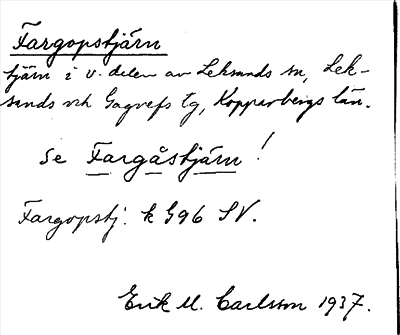 Fargopstjärn
tjärn i v. delen av Leksands sn, Lek-
sands och Gagnefs tg, Kopparbergs län.
Se Fargåstjärn!
Fargopstj. k G96 SV.
Erik M. Carlsson 1937.